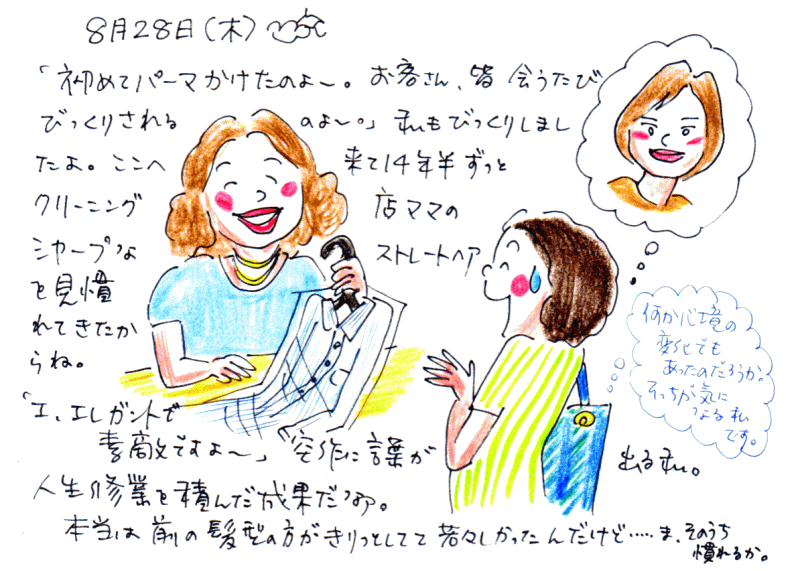 8月28日(木)
「初めてパーマかけたのよ〜。お客さん、皆会うたび
びっくりされるのよ〜。」私もびっくりしまし
たよ。ここへ来て14年半ずっと
クリーニング店ママの
シャープなストレートヘア
を見慣
れてきたか
らね。
「エ、エレガントで
素敵ですよ〜」咄嗟に言葉が出る私。
人生修業を積んだ成果だなァ。
本当は前の髪型の方がきりっとしてて若々しかったんだけど……ま、そのうち
慣れるか。
何か心境の
変化でも
あったのだろうか。
そっちが気に
なる私
です。